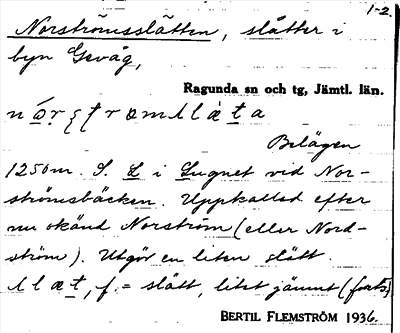 1-2.
Norströmsslåtten, slåtter i
byn Gevåg,
Ragunda sn och tg, Jämtl. län.
Belägen
1250 m. S. L i Lugnet vid Nor-
strömsbäcken. Uppkallad efter
nu okänd Norström (eller Nord-
ström). Utgör en liten slått.
f. = slått, litet jämnt (forts)
BERTIL FLEMSTRÖM 1936.